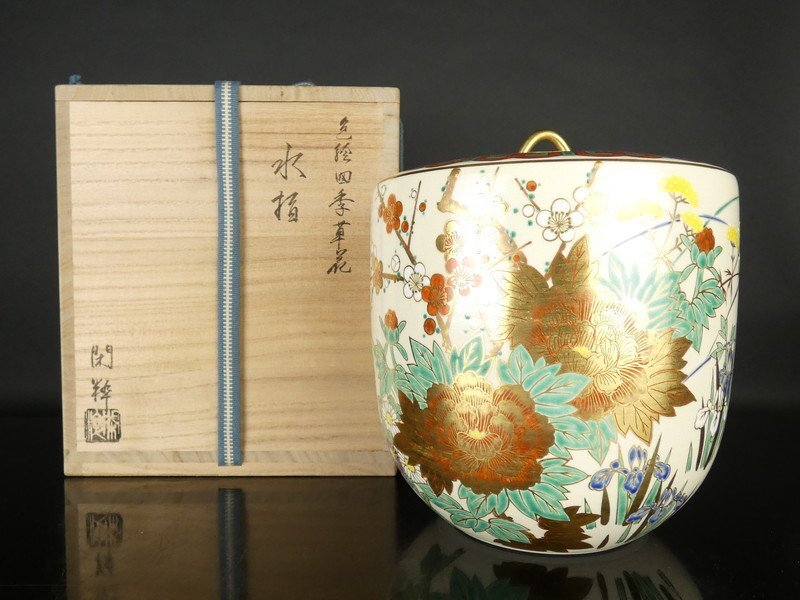 色絵四季草花
水指
閑粹